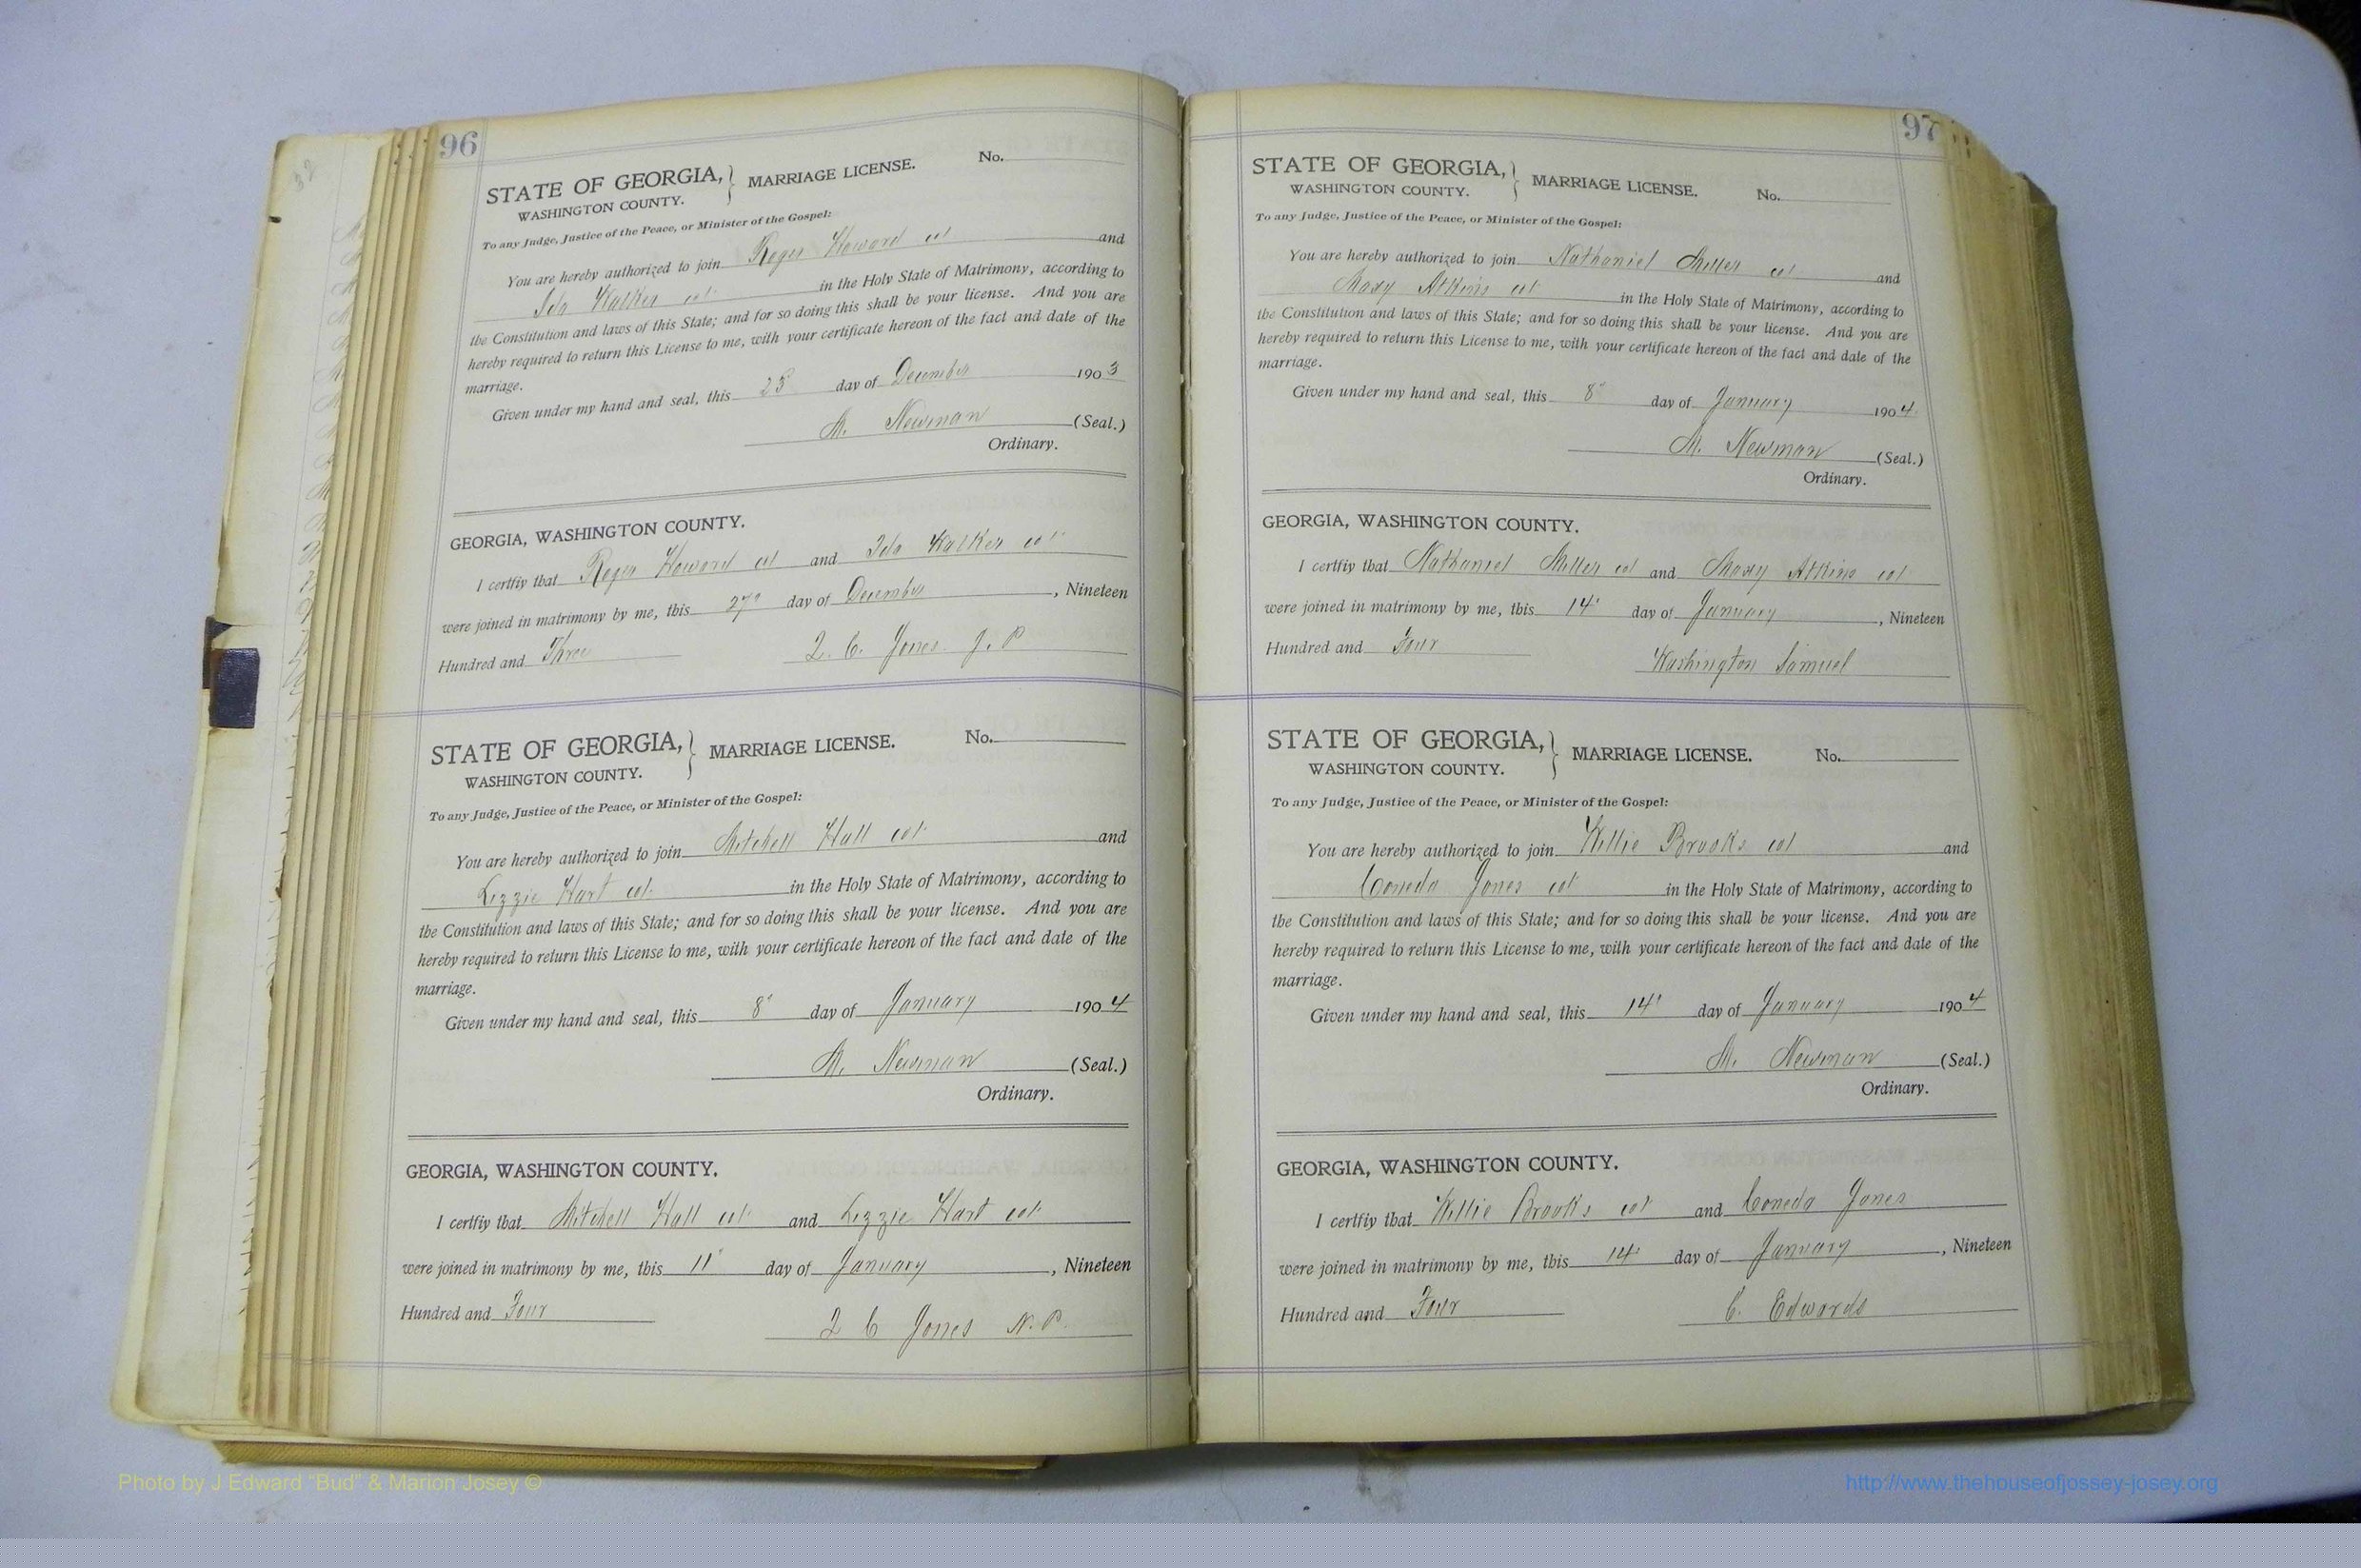 96
STATE OF GEORGIA, } MARRIAGE LICENSE. No.
WASHINGTON COUNTY.
To any Judge, Justice of the Peace, or Minister of the Gospel:
You are hereby authorized to join Roger Howard col and
Ida Walker col in the Holy State of Matrimony, according to
the Constitution and laws of this State; and for so doing this shall be your license. And you are
hereby required to return this License to me, with your certificate hereon of the fact and date of the
marriage.
Given under my hand and seal, this day of December 1903
M. Newman (Seal.)
Ordinary.
GEORGIA, WASHINGTON COUNTY.
I certfiy that Roger Howard col and Ida Walker col
were joined in matrimony by me, this 27" day of December, Nineteen
Hundred and Three C. Jones J. P
STATE OF GEORGIA, } MARRIAGE LICENSE. No.
WASHINGTON COUNTY.
To any Judge, Justice of the Peace, or Minister of the Gospel:
You are hereby authorized to join Mitchell Hall col and
Lizzie Hart col. in the Holy State of Matrimony, according to
the Constitution and laws of this State; and for so doing this shall be your license. And you are
hereby required to return this License to me, with your certificate hereon of the fact and date of the
marriage.
Given under my hand and seal, this 8" day of January 1904
M. Newman (Seal.)
Ordinary.
GEORGIA, WASHINGTON COUNTY.
I certfiy that Mitchell Hall col. and Lizzie Hart col.
were joined in matrimony by me, this 11" day of January, Nineteen
Hundred and Four C Jones N. P.
97
STATE OF GEORGIA, } MARRIAGE LICENSE. No.
WASHINGTON COUNTY.
To any Judge, Justice of the Peace, or Minister of the Gospel:
You are hereby authorized to join Nathaniel Miller col and
Mary Atkins col in the Holy State of Matrimony, according to
the Constitution and laws of this State; and for so doing this shall be your license. And you are
hereby required to return this License to me, with your certificate hereon of the fact and date of the
marriage.
Given under my hand and seal, this 8" day of January 1904
M. Newman (Seal.)
Ordinary.
GEORGIA, WASHINGTON COUNTY.
I certfiy that Nathaniel Miller col and Mary Atkins col
were joined in matrimony by me, this 14" day of January, Nineteen
Hundred and Four Washington Samuel
STATE OF GEORGIA, } MARRIAGE LICENSE. No.
WASHINGTON COUNTY.
To any Judge, Justice of the Peace, or Minister of the Gospel:
You are hereby authorized to join Willie Brooks col and
Coneda Jones col in the Holy State of Matrimony, according to
the Constitution and laws of this State; and for so doing this shall be your license. And you are
hereby required to return this License to me, with your certificate hereon of the fact and date of the
marriage.
Given under my hand and seal, this 14" day of January 1904
M. Newman (Seal.)
Ordinary.
GEORGIA, WASHINGTON COUNTY.
I certfiy that Willie Brooks col and Coneda Jones
were joined in matrimony by me, this 14" day of January, Nineteen
Hundred and Four C. Edwards
Photo by J Edward "Bud" & Marion Josey ©
http://www.thehouseofjossey-josey.org